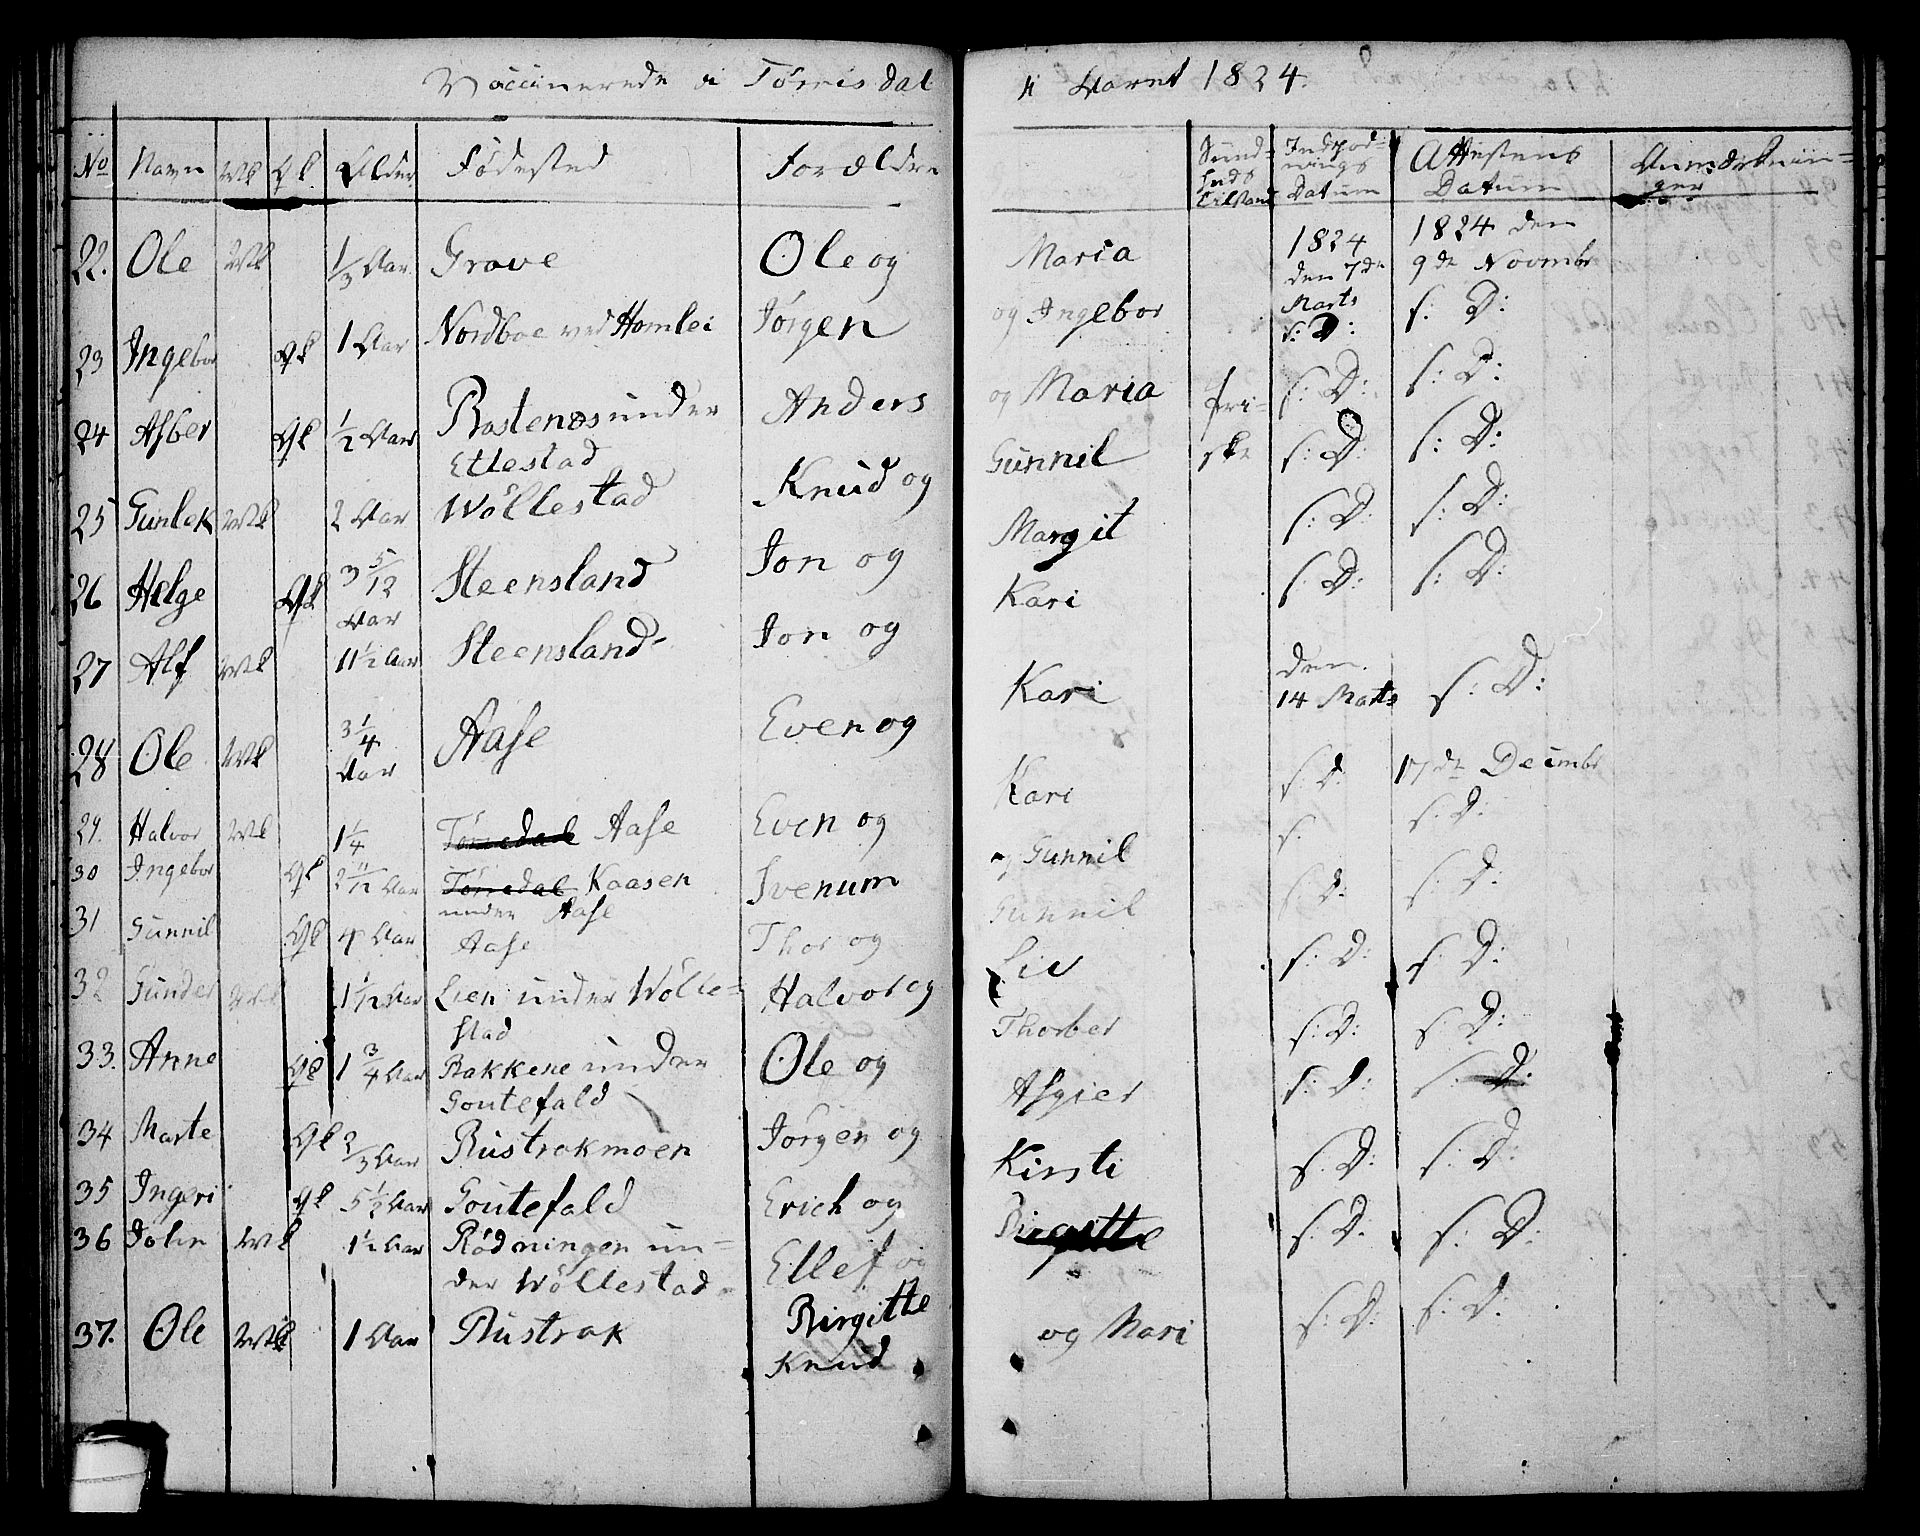 Vaccinerede i Tørrisdal i Aaret 1824.
No Navn Mk Qk Alder Fødested Forældre Sund- Indpod- Attestens Anmærknin-
heds nings Datum ger
Tilstand Datum
22. Ole Mk 1/3 Aar Grave Ole og Maria 1824 den 7de Marts 1824 den 9de Novmbr
23 Ingebor Qk 1 Aar Nordboe ved Homlei Jørgen og Ingebor s: D: s: D:
24 Asber Qk 1/2 Aar Rostenæs under Anders og Maria fri- s: D: s: D:
Ettestad
25 Gunlek Mk 2 Aar Wöllestad Knud og Gunnil ske s: D: s: D:
26 Helge Qk 3 5/12 Aar Steensland Jon og Margit s: D: s: D:
27 Alf Mk 11 1/2 Aar Steensland Jon og Kari s: D: s: D:
28 Ole Mk 3 1/4 Aar Aase Even og Kari den 14 Marts s: D:
29. Halvor Mk 1 1/4 Tørredal Aase Even og Kari s: D: 17de Decimbr
s: D:
30 Ingebor Qk 2 11/12 Aar Tørredal Kaasen Svenum og Gunnil s.
under Aase
31 Gunnil Qk 4 Aar Aase Thor og Gunnil s: D: s: D:
32 Gunder Mk 1 1/12 Aar Lien under Wölle- Halvor og Liv s: D: s: D:
stad
33. Anne Qk 1 3/4 Aar Bakkene under Ole og Thorber s: D: s: D:
Goutefald
34 Marte Qk 2/3 Aar Rustrakmoen Jørgen og Asgier s: D: s: D:
35 Ingeri Qk 5 1/2 Aar Goutefald Erich og Kirsti s: D: s: D:
36 John Mk 1 1/2 Aar Rödningen un- Ellef og Birgitte s: D: s: D:
der Wöllestad Birgitte
37. Ole Mk 1 Aar Rustrak Knud og Mari s: D: s: D.